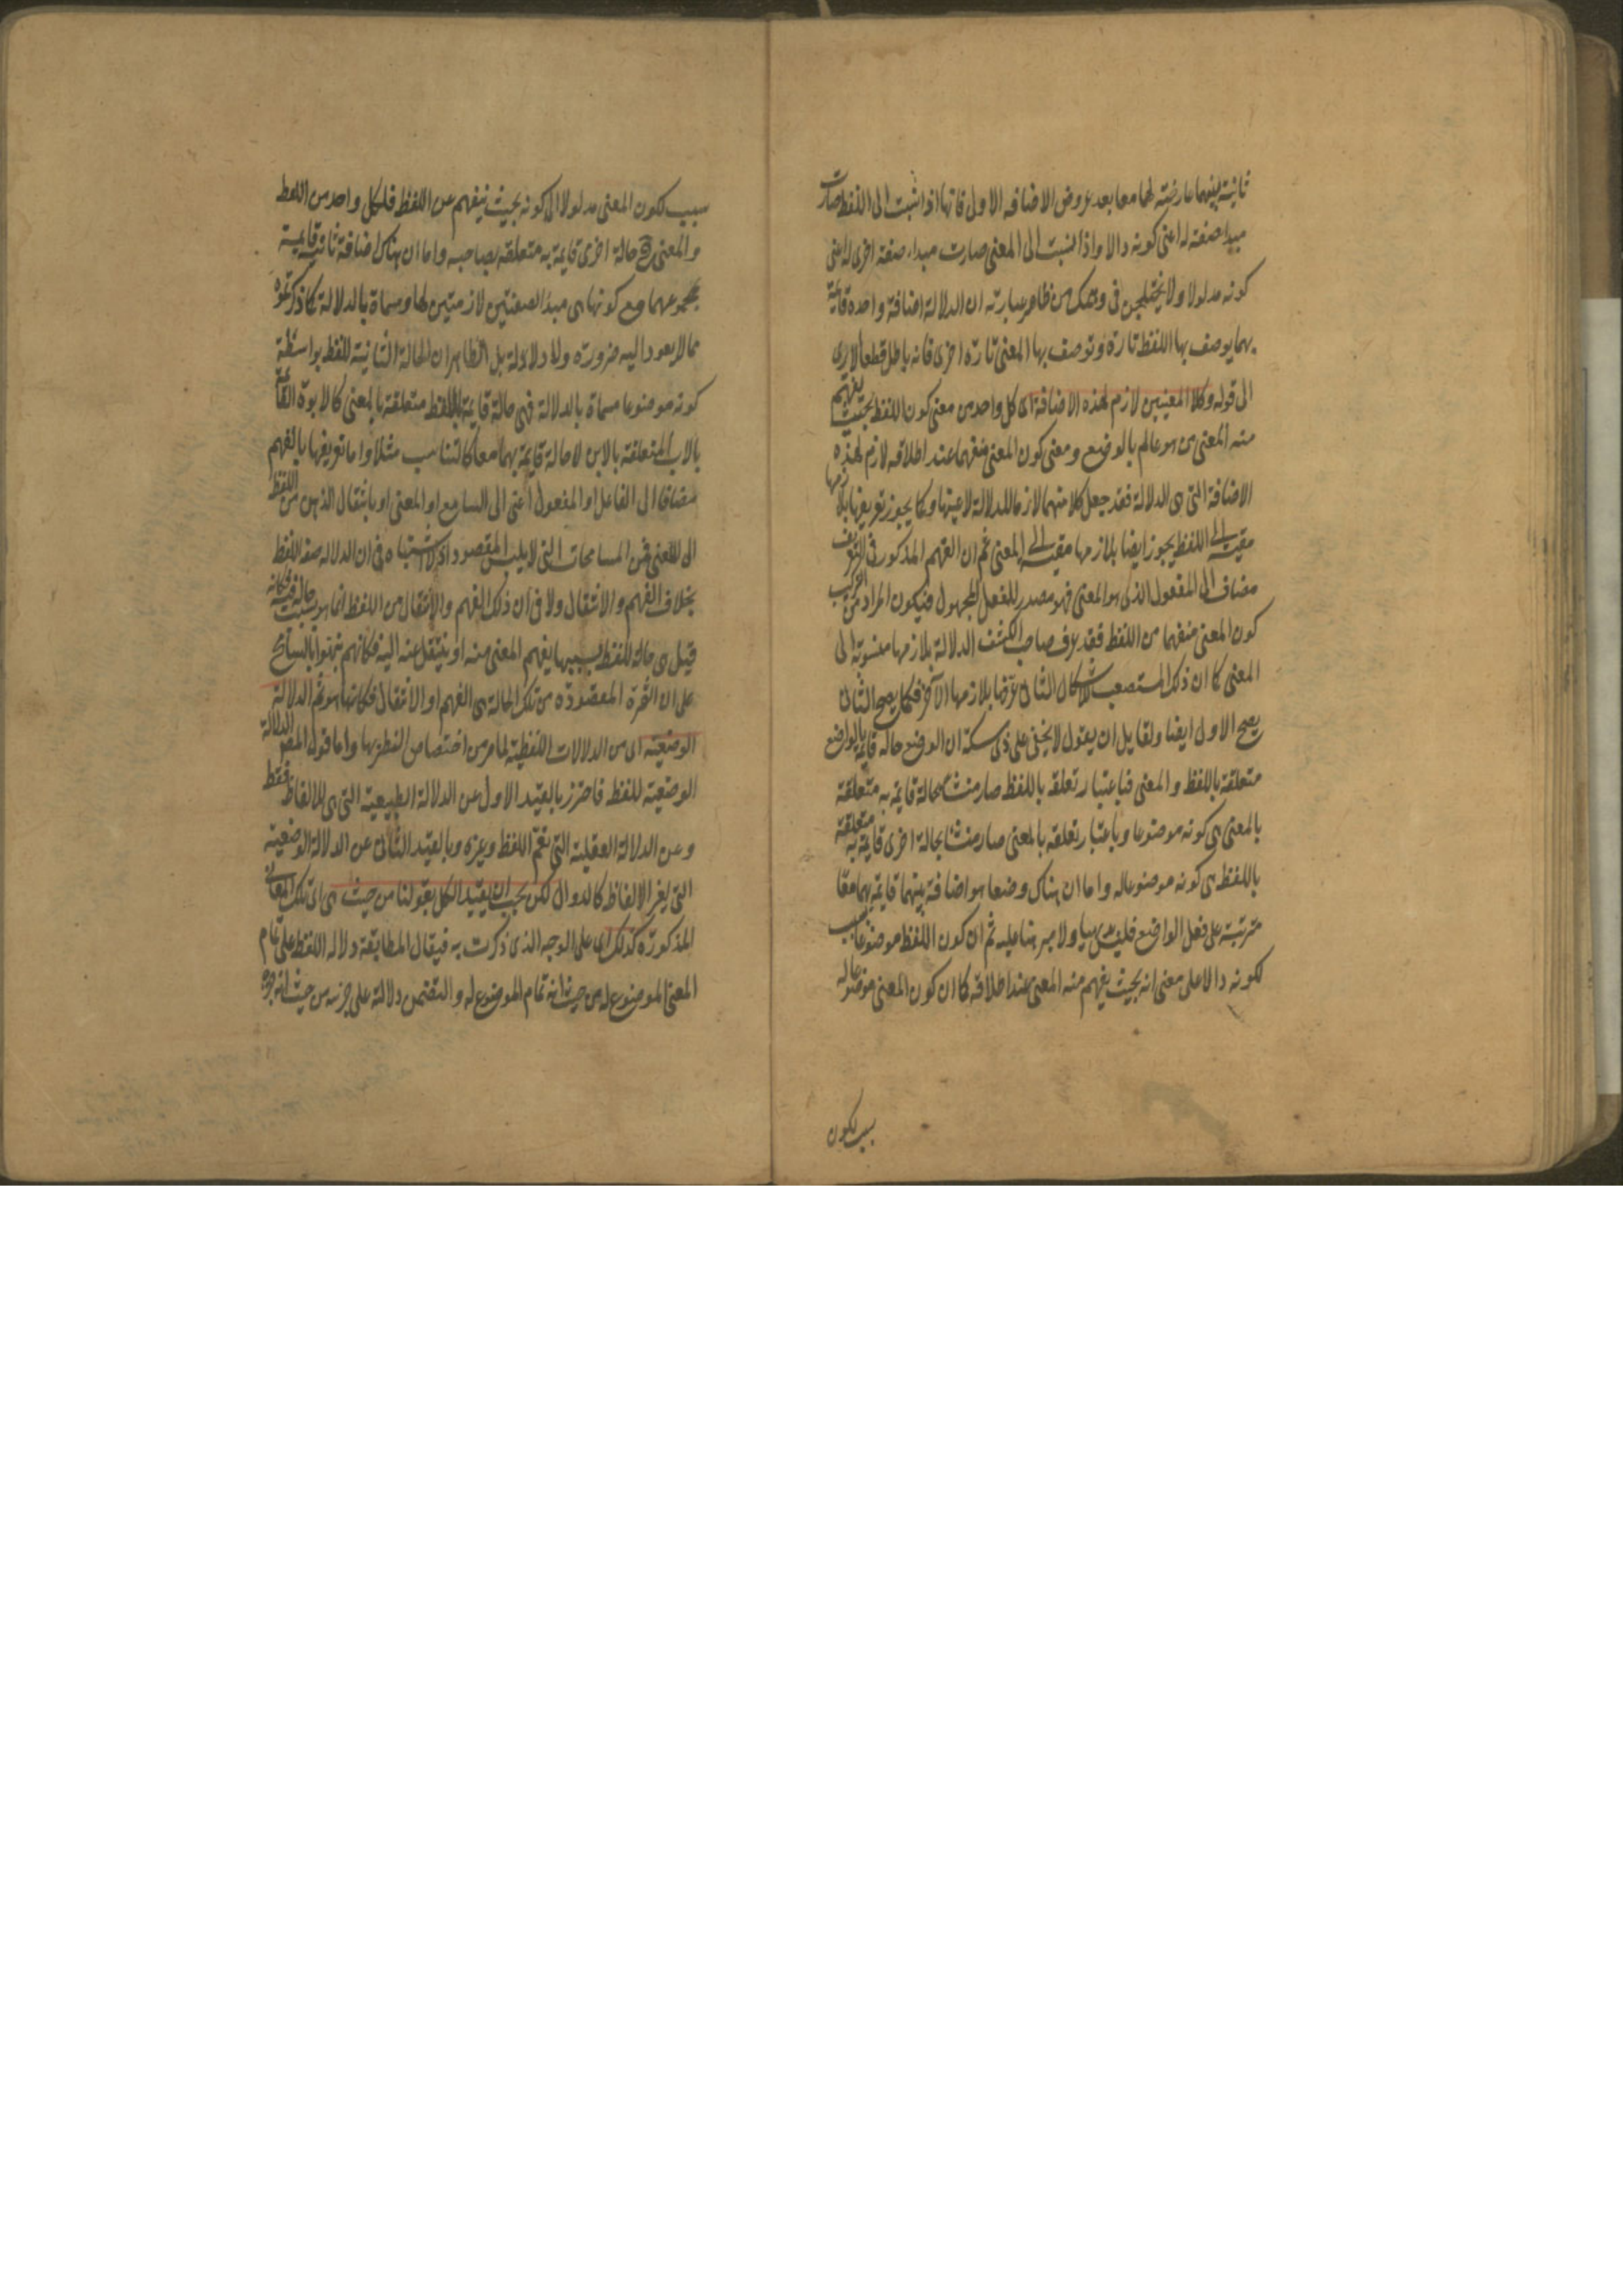 ثانية بينهما عارضة لهما معا بعد عروض الاضافه الاولى فانها اذا نسبت الى اللفظ صارت
مبدا صفة له اعنى كونه دالا واذا نسبت الى المعنى صارت مبداء صفة اخرى له اعنى
كونه مدلولا ولا يختلجن فى وهمك من ظاهر عبارته ان الدلالة اضافة واحدة قائمة
بهما يوصف بها اللفظ تارة وتوصف بها المعنى تارة اخرى فانه باطل قطعا الا يرى
الى قوله وكلا المعنيين لازم لهذه الاضافة اى كل واحد من معنى كون اللفظ بحيث يفهم
منه المعنى من هو عالم بالوضع ومعنى كون المعنى منفهما عند اطلاقه لازم لهذه
الاضافة التى هى الدلالة فقد جعل كلا منهما لازما للدلالة لا عينها وكما يجوز تعريفها بلازمها
مقيسة الى اللفظ يجوز ايضا بلازمها مقيسة الى المعنى ثم ان الفهم المذكور فى التعريف
مضاف الى المفعول الذى هو المعنى فهو مصدر للفعل المجهول فيكون المراد من التركيب
كون المعنى منفهما من اللفظ فقد عرف صاحب الكشف الدلالة بلازمها منسوبة الى
المعنى كما ان ذلك المستصعب للاشكال الثانى عرفها بلازمها الآخر فكما يصح الثانى
يصح الاول ايضا ولقايل ان يقول لا يخفى على ذى مسكة ان الوضع حالة قايمة بالواضع
متعلقة باللفظ والمعنى فباعتبار تعلقه باللفظ صار منشأ لحالة قايمة به متعلقة
بالمعنى هى كونه موضوعا وباعتبار تعلقه بالمعنى صار منشأ لحالة اخرى قايمة به متعلقة
باللفظ هى كونه موضوعا له واما ان هناك وضعا هو اضافة بينهما قايمة بهما معا
مترتبة على فعل الواضع فليس بينا ولا مبرهنا عليه ثم ان كون اللفظ موضوعا سبب
لكونه دالا على معنى انه بحيث يفهم منه المعنى عند اطلاقه كما ان كون المعنى موضوعا له
سبب لكون
سبب لكون المعنى مدلولا اى كونه بحيث ينفهم عن اللفظ فلكل واحد من اللفظ
والمعنى ح حالة اخرى قايمة به متعلقة بصاحبه واما ان هناك اضافة ثانية قايمة
بمجموعهما مع كونها هى مبدأ الصفتين لازمتين لها ومسماة بالدلالة كما ذكرتموه
مما لا يعود اليه ضرورة ولا دلالة بل الظاهر ان الحالة الثانية للفظ بواسطة
كونه موضوعا مسماة بالدلالة فهى حالة قايمة باللفظ متعلقة بالمعنى كالابوة القائمة
بالاب المتعلقة بالابن لا حالة قايمة بهما معا كالتناسب مثلا واما تعريفها بالفهم
مضافا الى الفاعل او المفعول اعنى الى السامع او المعنى او بانتقال الذهن من اللفظ
الى المعنى فمن المسامحات التى لا يلبس المقصود اذ لا اشتباه فى ان الدلالة صفة اللفظ
بخلاف الفهم والانتقال ولا فى ان ذلك الفهم والانتقال من اللفظ انما هو بسبب حالة فيه فكانه
قيل هى حالة للفظ بسببها يفهم المعنى منه او ينتقل عنه اليه فكانهم نبهوا بالتسامح
على ان الثمرة المقصودة من تلك الحالة هى الفهم او الانتقال فكانها هو ثم الدلالة
الوضعية اى من الدلالات اللفظية لما مر من اختصاص النظر بها واما قول المص الدلالة
الوضعية للفظ فاحترز بالقيد الاول عن الدلالة الطبيعية التى هى للالفاظ فقط
وعن الدلالة العقلية التى تعم اللفظ وغيره وبالقيد الثانى عن الدلالة الوضعية
التى لغير الالفاظ كالدوال لكن يجب ان يقيد الكل بقولنا من حيث هى اى تلك المعانى
المذكورة كذلك اى على الوجه الذى ذكرت به فيقال المطابقة دلالة اللفظ على تمام
المعنى الموضوع له من حيث انه تمام الموضوع له والتضمن دلالة على جزئه من حيث انه جزؤه